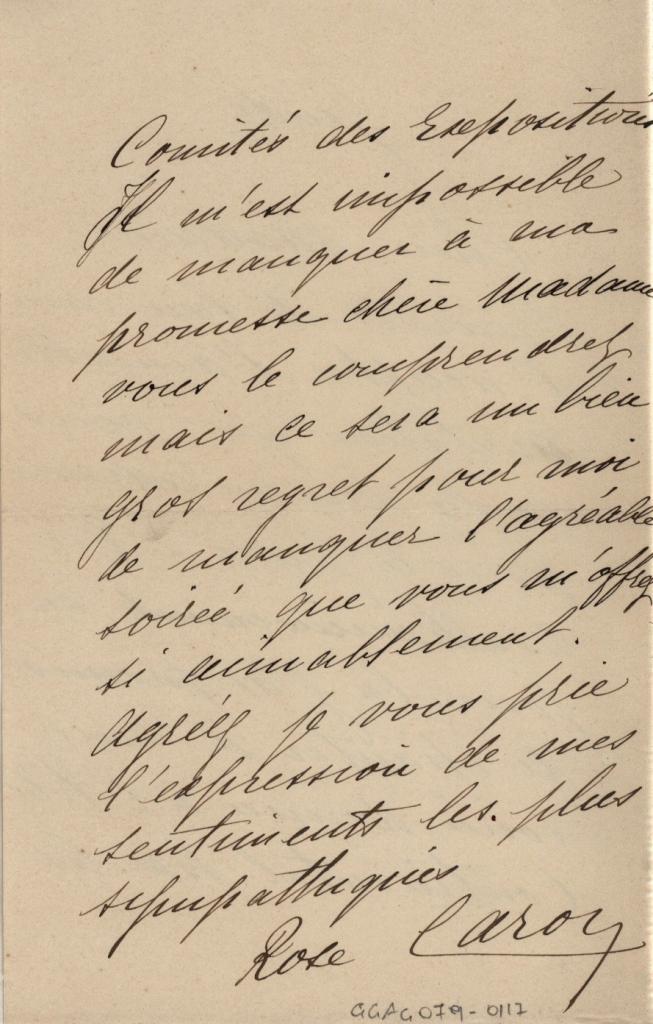 Comités des Expositions
Il m'est impossible
de manquer à ma
promesse chère Madame
vous le comprendrez
mais ce sera un bien
gros regret pour moi
de manquer l'agréable
soirée que vous m'offrez
si aimablement.
Agréez je vous prie
l'expression de mes
sentiments les plus
sympathiques
Rose Caron
GGAG079-0117